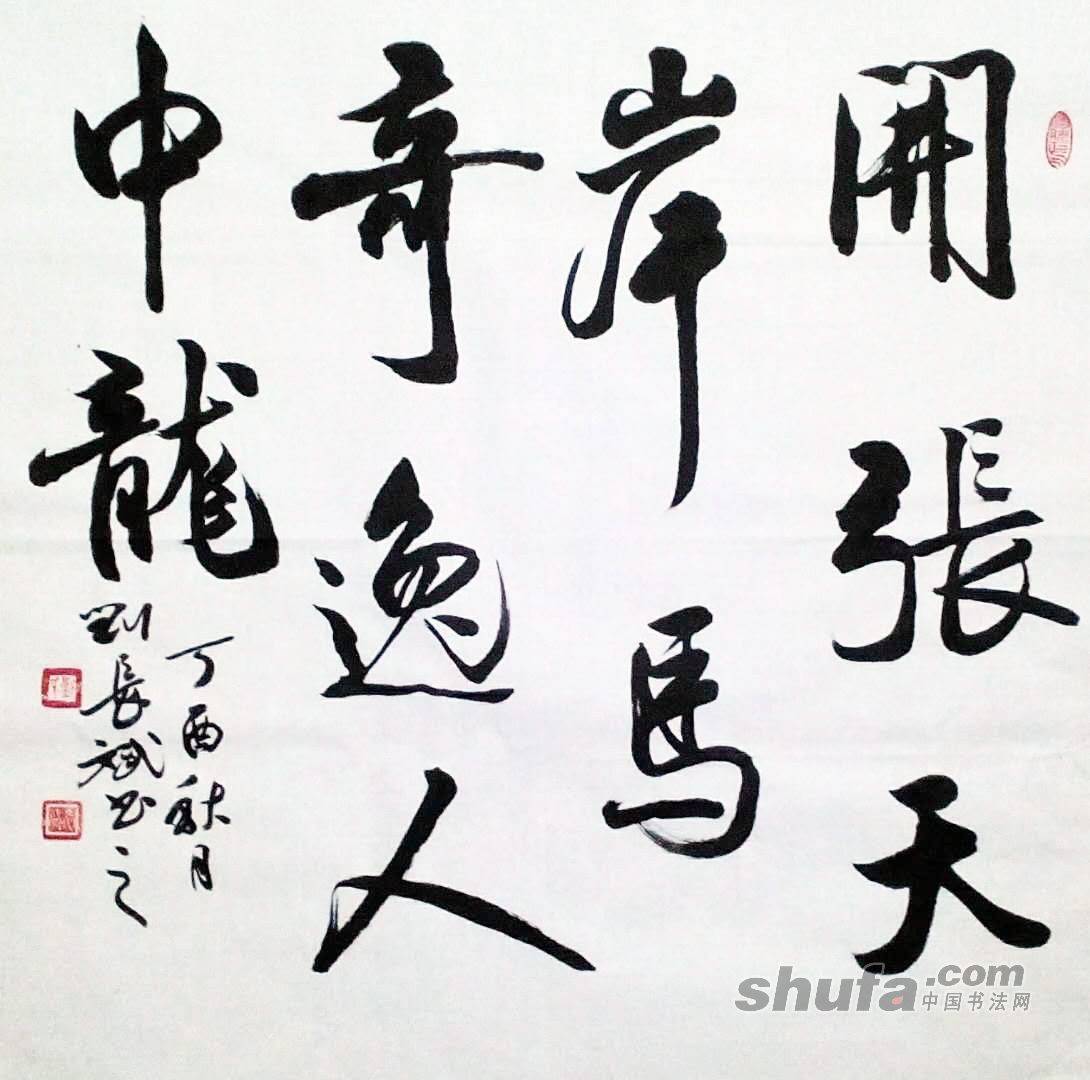 開張天
岸馬
奇逸人
中龍
丁酉秋月
劉長斌書之
shufa.com
中国书法网